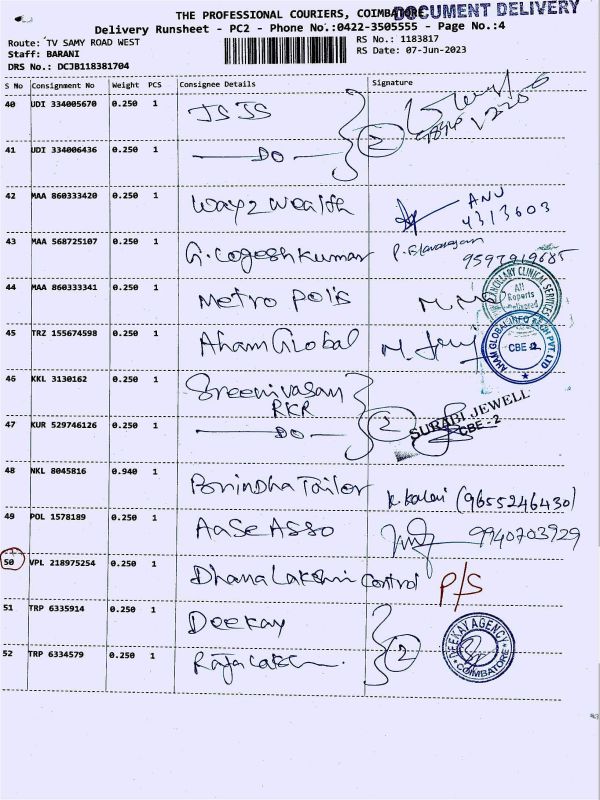 THE PROFESSIONAL COURIERS, COIMBATORE
DOCUMENT DELIVERY
Delivery Runsheet - PC2 - Phone No.:0422-3505555 - Page No.:4
Route: TV SAMY ROAD WEST
RS No.: 1183817
Staff: BARANI
RS Date: 07-Jun-2023
DRS No.: DCJB118381704
S No Consignment No Weight PCS Consignee Details Signature
40 UDI 334005670 0.250 1 JSJS 2
41 UDI 334006436 0.250 1 — DO —
42 MAA 860333420 0.250 1 Way2Wealth ANU
4313603
43 MAA 568725107 0.250 1 G. Logeshkumar
9597919685
44 MAA 860333341 0.250 1 Metropolis
ANCILLARY CLINICAL SERVICES
All Reports Delivered
45 TRZ 155674598 0.250 1 Aham Global
AHAM GLOBAL INFO TECH PVT. LTD
CBE-2
46 KKL 3130162 0.250 1 Sreenivasan
RKR
47 KUR 529746126 0.250 1 — DO — 2
SURABI JEWELL
CBE-2
48 NKL 8045816 0.940 1 Borindha Tailor K. Kalai (9655246430)
49 POL 1578189 0.250 1 AaSe Asso 9940703929
50 VPL 218975254 0.250 1 Dhana Lakshmi Control P/S
51 TRP 6335914 0.250 1 Deekay 2
DEEKAY AGENCY
COIMBATORE
52 TRP 6334579 0.250 1